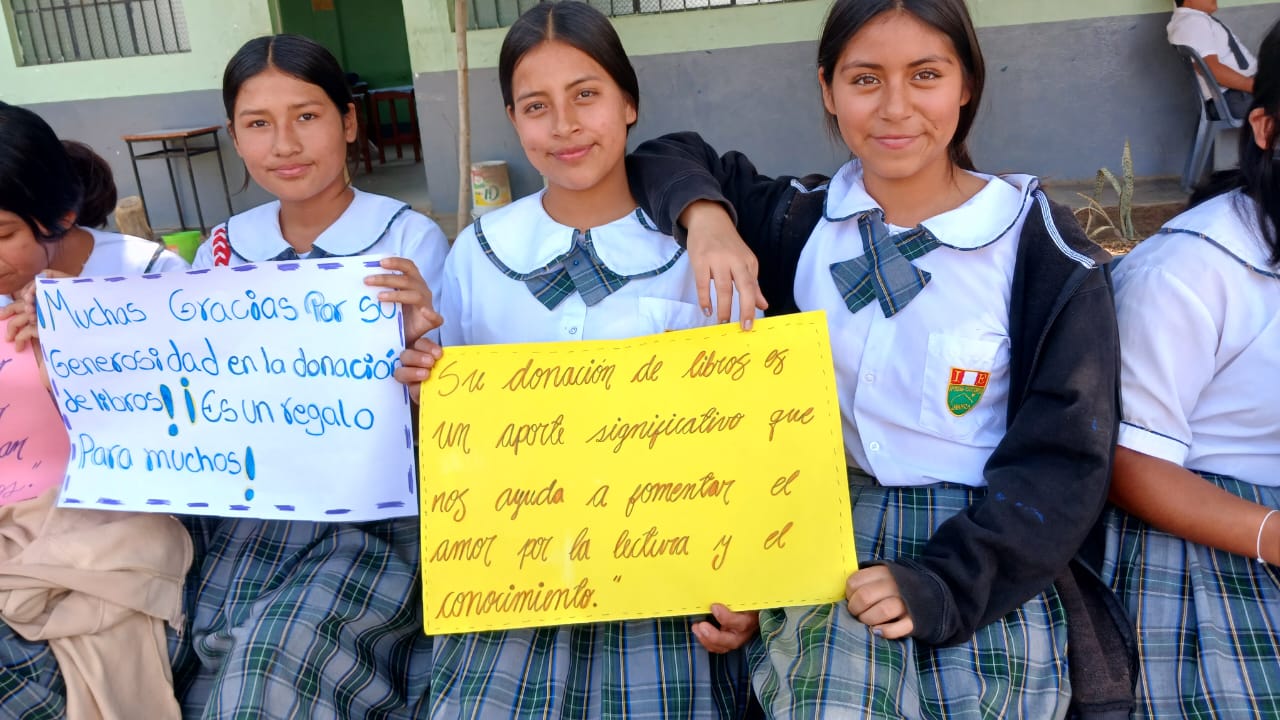 Muchas Gracias Por su
Generosidad en la donación
de libros!! ¡Es un regalo
Para muchos!
Su donación de libros es
un aporte significativo que
nos ayuda a fomentar el
amor por la lectura y el
conocimiento."
I E